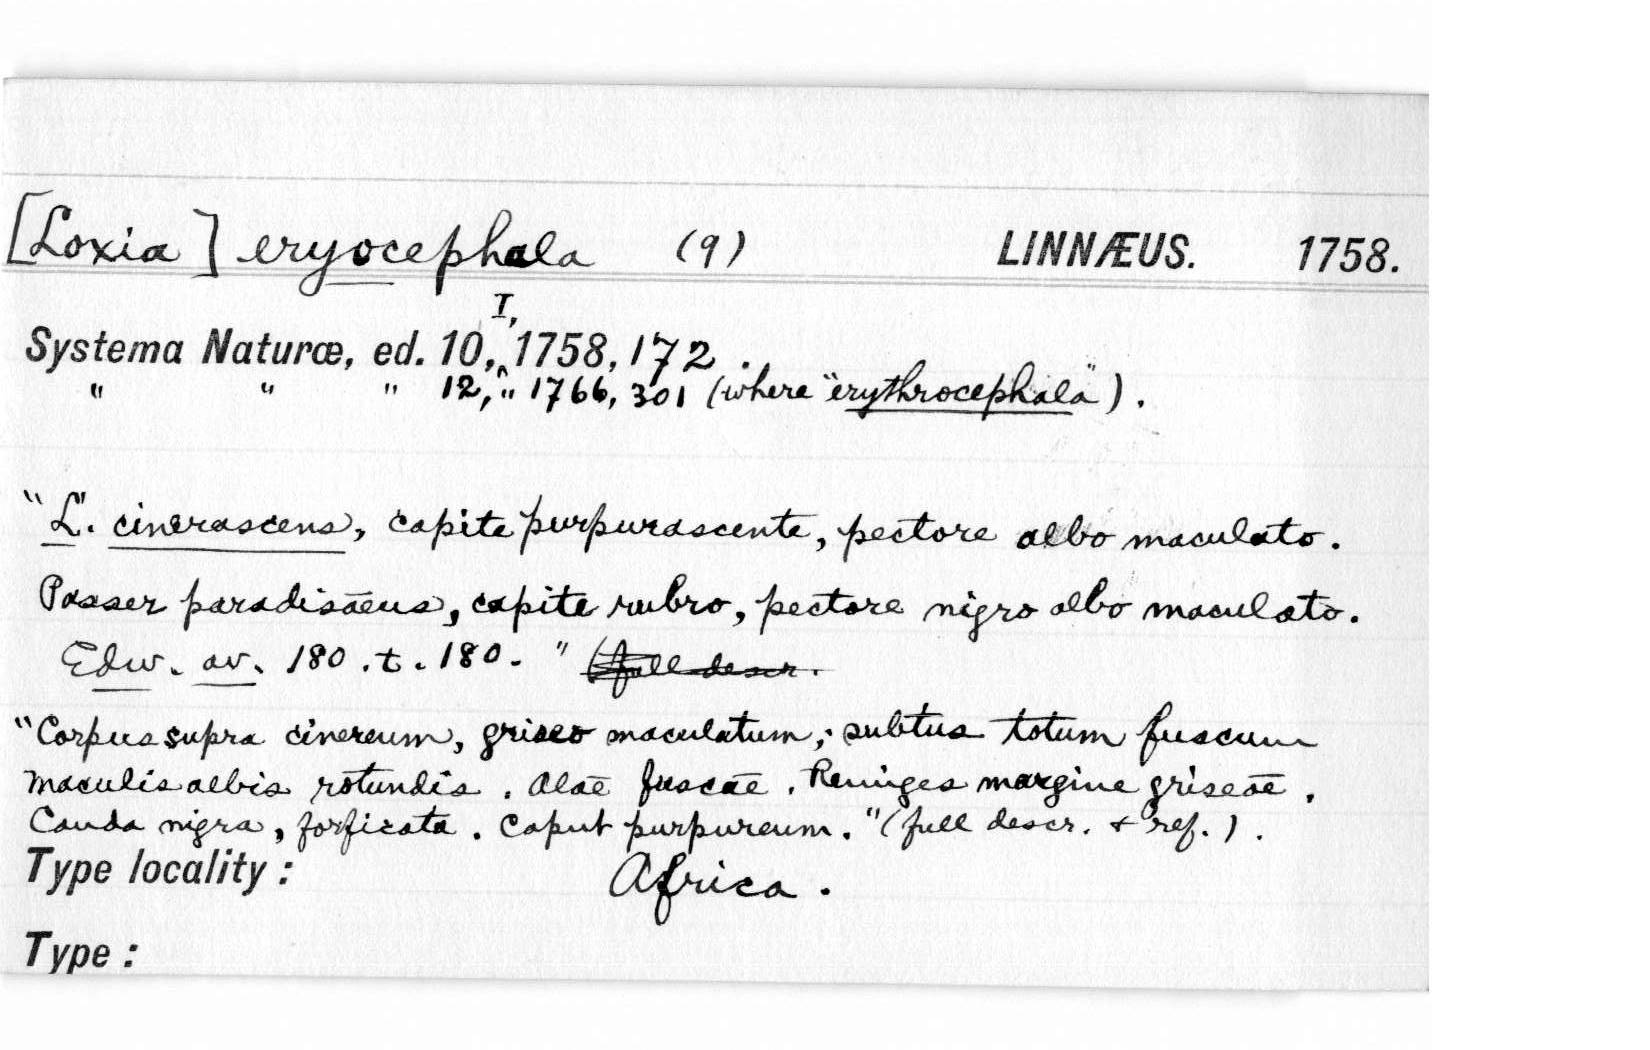 [Loxia] eryocephala (9) LINNÆUS. 1758.
I,
Systema Naturæ, ed. 10,^1758, 172.
" " " 12, " 1766, 301 (where "erythrocephala").
"L. cinerascens, capite purpurascente, pectore albo maculato.
Passer paradisaeus, capite rubro, pectore nigro albo maculato.
Edw. av. 180. t. 180." (full descr.
"Corpus supra cinereum, griseo maculatum; subtus totum fuscum
maculis albis rotundis. Alae fuscae. Reminges margine griseae.
Cauda nigra, forficata. Caput purpureum." (full descr. & ref.).
Type locality: Africa.
Type: